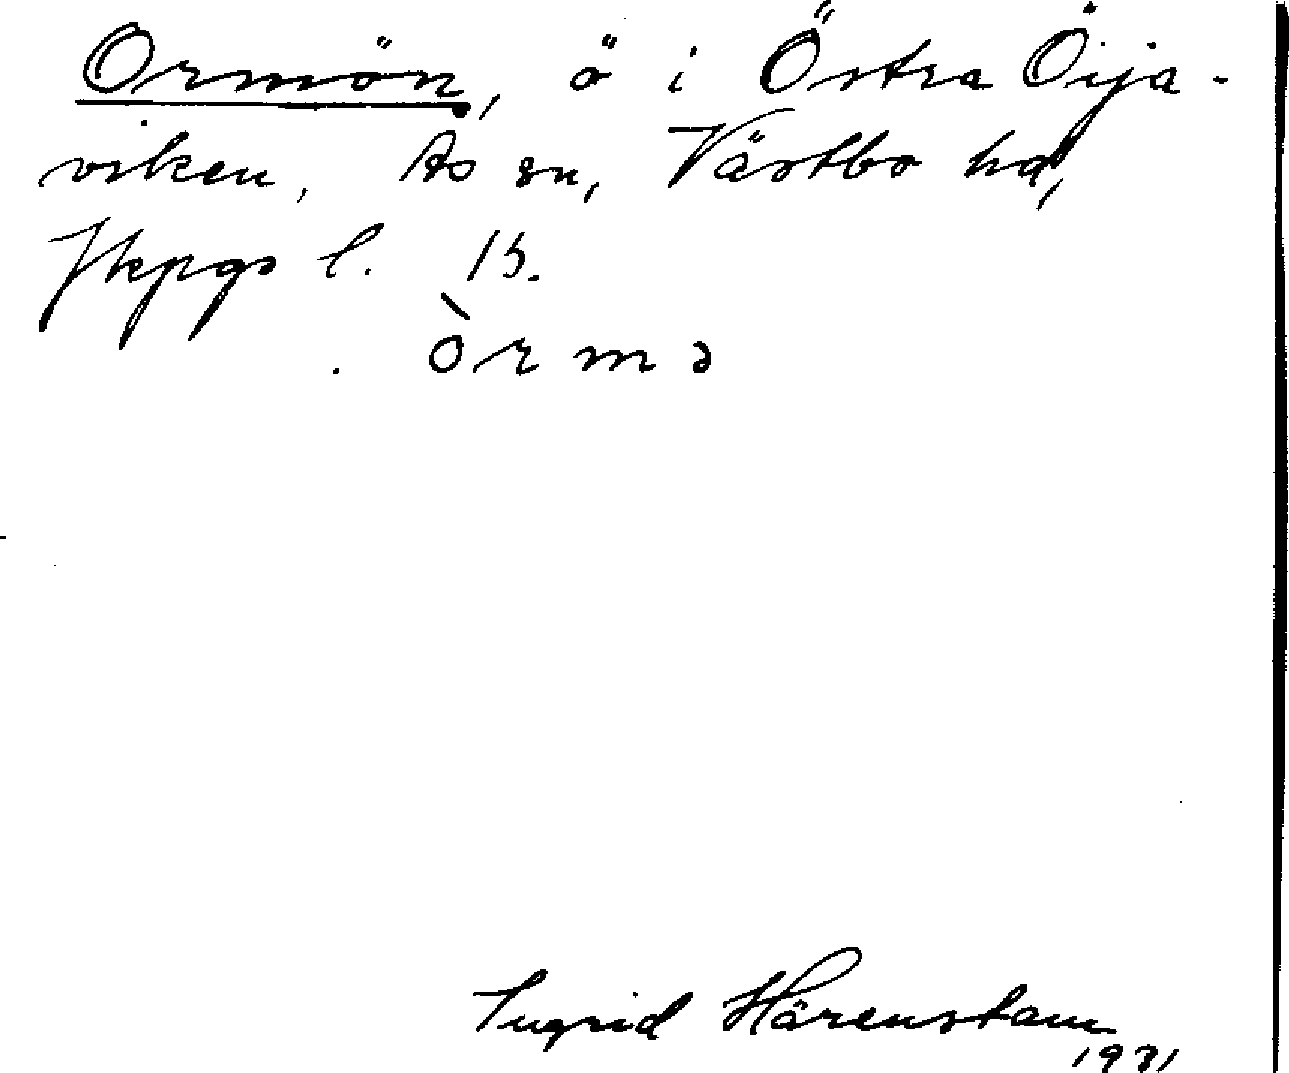 Ormön, ö i Östra Öija-
viken, Ås sn, Västbo hd,
Jkpgs l. 15.
òrmə
Ingrid Härenstam
1931